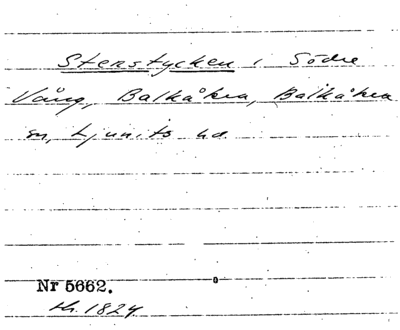 Stenstycken i Södre
Vång, Balkåkra, Balkåkra
sn, Ljunits hd
Nr 5662.
th. 1824